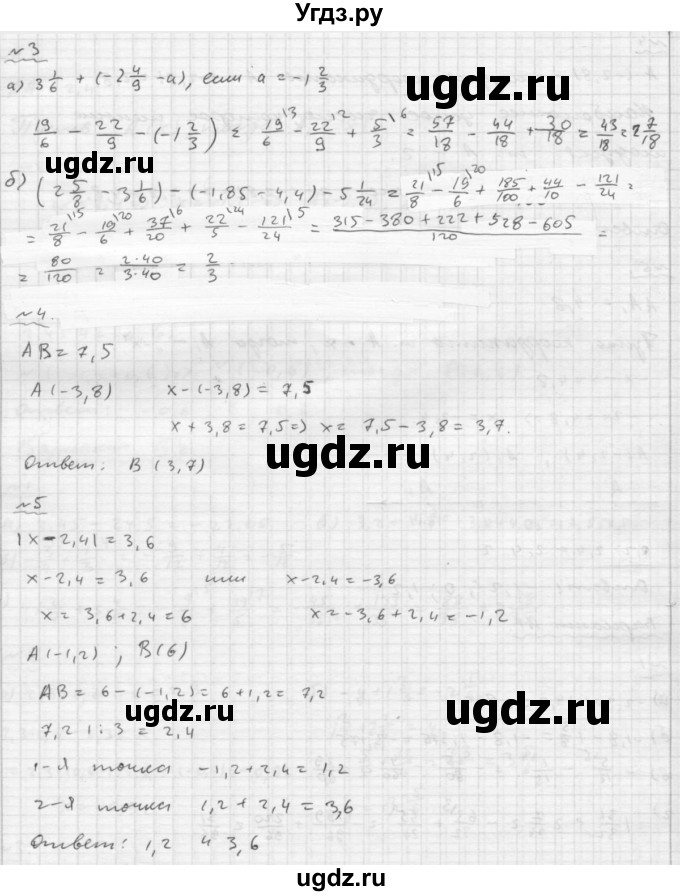 Угдз.ру
№3
а) 3 1/6 + (-2 4/9 - а), если а = -1 2/3
19/6 - 22/9 - (-1 2/3) = 19/6 \3 - 22/9 \2 + 5/3 \6 = 57/18 - 44/18 + 30/18 = 43/18 = 2 7/18
б) (2 5/8 - 3 1/6) - (-1,85 - 4,4) - 5 1/24 = 21/8 \15 - 19/6 \20 + 185/100 + 44/10 - 121/24 =
= 21/8 \15 - 19/6 \20 + 37/20 \6 + 22/5 \24 - 121/24 \5 = 315 - 380 + 222 + 528 - 605/120 =
= 80/120 = 2·40/3·40 = 2/3
№4.
AB = 7,5
A(-3,8) x - (-3,8) = 7,5
x + 3,8 = 7,5 => x = 7,5 - 3,8 = 3,7.
Ответ: B (3,7)
№5
|x - 2,4| = 3,6
x - 2,4 = 3,6 или x - 2,4 = -3,6
x = 3,6 + 2,4 = 6 x = -3,6 + 2,4 = -1,2
A(-1,2) ; B(6)
AB = 6 - (-1,2) = 6 + 1,2 = 7,2
7,2 : 3 = 2,4
1-я точка -1,2 + 2,4 = 1,2
2-я точка 1,2 + 2,4 = 3,6
Ответ: 1,2 и 3,6
ugdz.ru
ugdz.ru
ugdz.ru
ugdz.ru
ugdz.ru
ugdz.ru
ugdz.ru
ugdz.ru